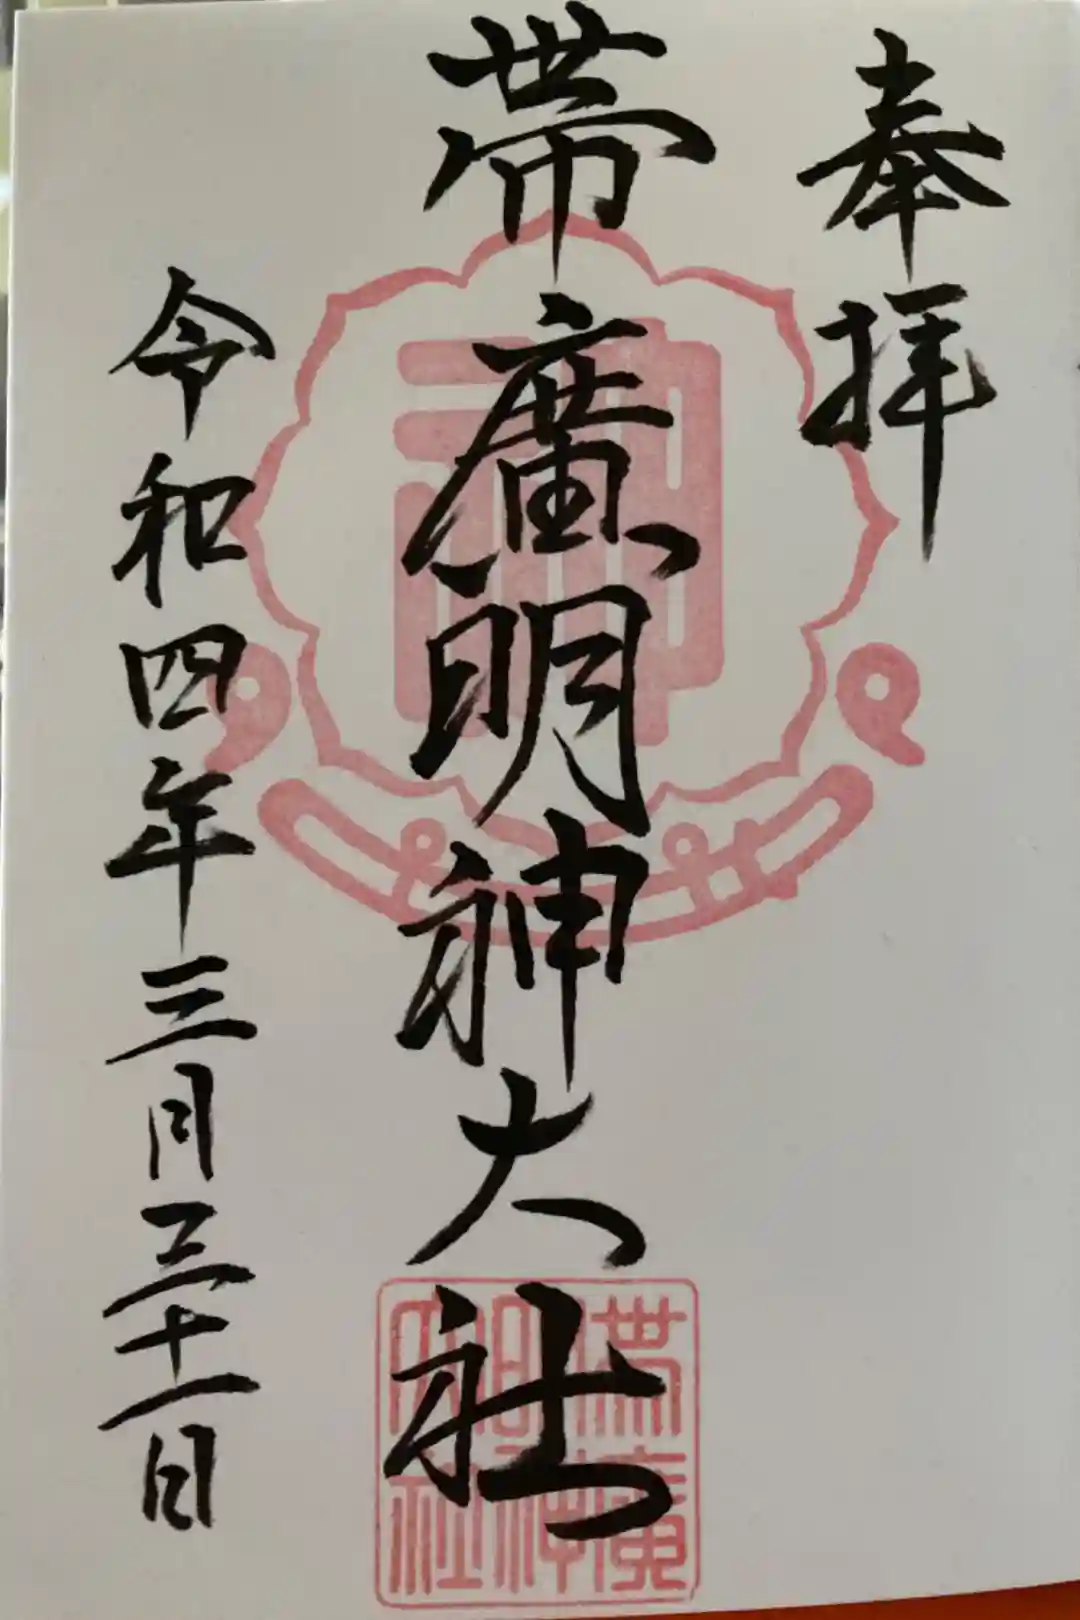 奉拝
帯廣明神大社
令和四年三月三十一日
神
帯廣
明神
大社